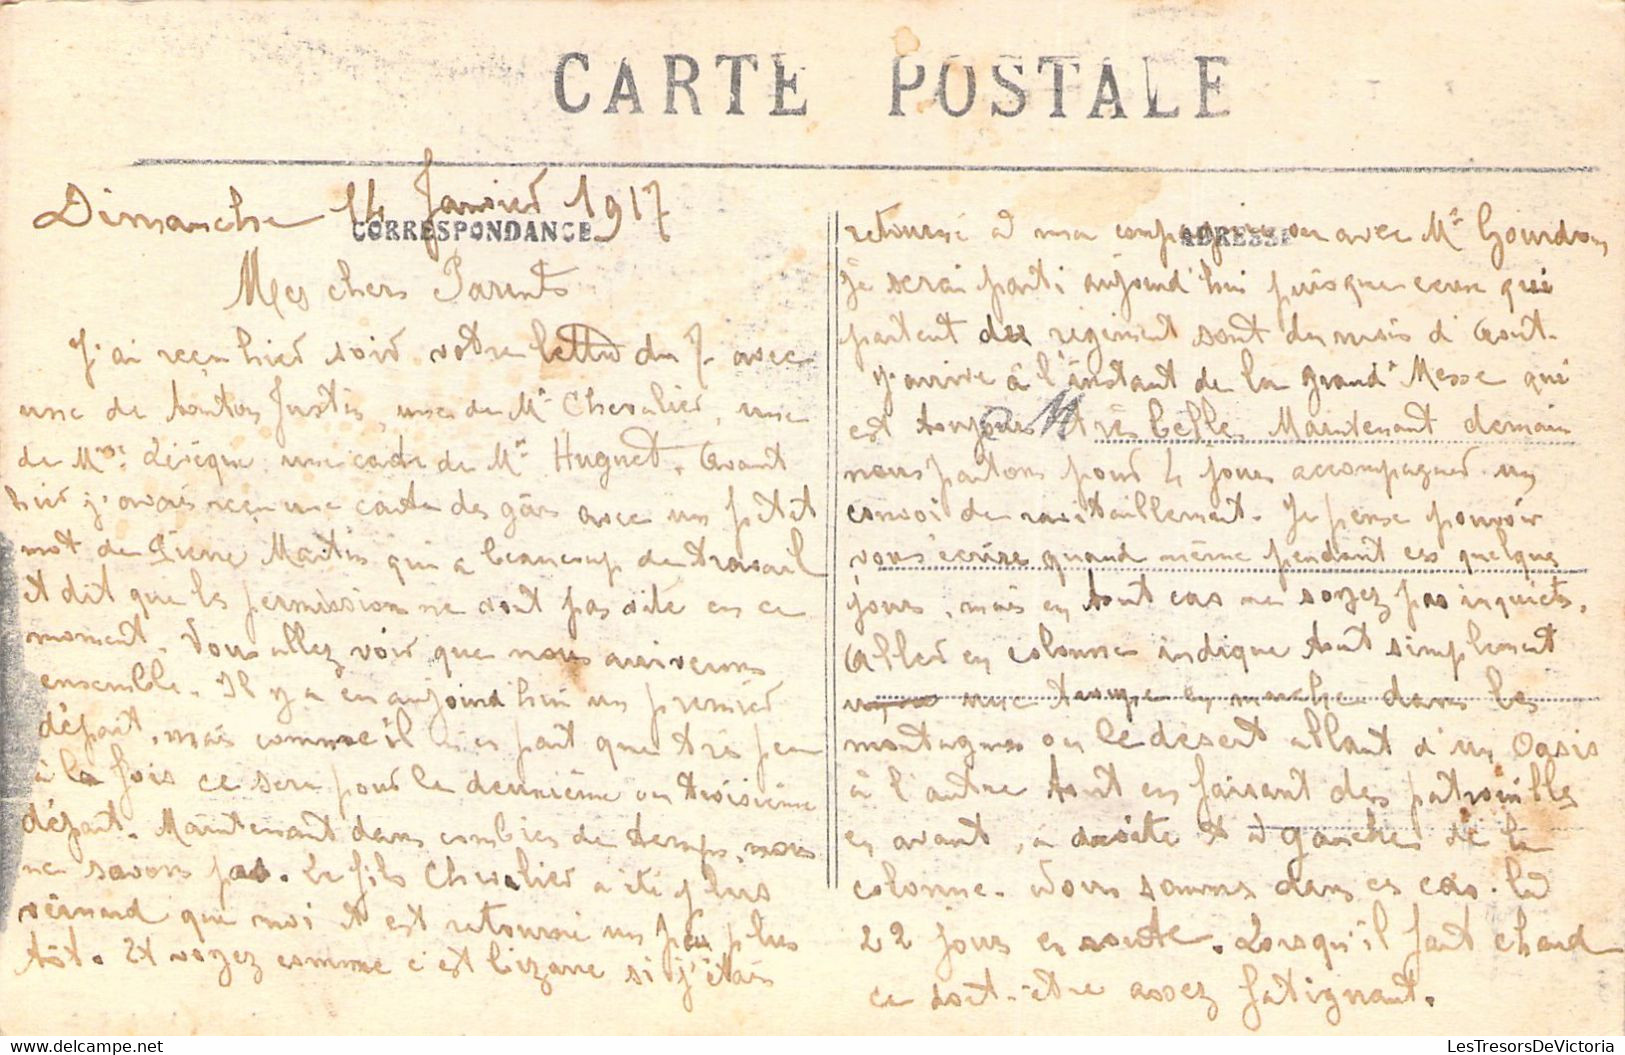 CARTE POSTALE
CORRESPONDANCE
ADRESSE
Dimanche 14 Janvier 1917
Mes chers Parents
J'ai reçu hier soir votre lettre du 7 avec
une de tonton Justin, une de Mr Chevalier, une
de Mme Lévêque une carte de Mr Huguet. Avant
hier j'avais reçu une carte des gâs avec un petit
mot de Pierre Martin qui a beaucoup de travail
et dit que les permissions ne vont pas vite en ce
moment. Vous allez voir que nous arriverons
ensemble. Il y a eu aujourd'hui un premier
départ, mais comme il n'en part que très peu
à la fois ce sera pour le deuxième ou troisième
départ. Maintenant dans combien de temps, nous
ne savons pas. Le fils Chevalier a été plus
veinard que moi et est retourné un peu plus
tôt. Et voyez comme c'est bizarre si j'étais
retourné à ma compagnie ou avec Mr Gourdon
je serai parti aujourd'hui puisque ceux qui
partent du régiment sont du mois d'Août.
J'arrive à l'instant de la grand' Messe qui
est toujours très belle. Maintenant demain
nous partons pour 4 jours accompagner un
convoi de ravitaillement. Je pense pouvoir
vous écrire quand même pendant ces quelques
jours, mais en tout cas ne soyez pas inquiets.
Aller en colonne indique tout simplement
une troupe en marche dans les
montagnes ou le désert allant d'un Oasis
à l'autre tout en faisant des patrouilles
en avant, à droite et à gauche de la
colonne. Nous sommes dans ce cas. Le
22 jours en route. Lorsqu'il fait chaud
ce doit-être assez fatignant.
LesTresorsDeVictoria